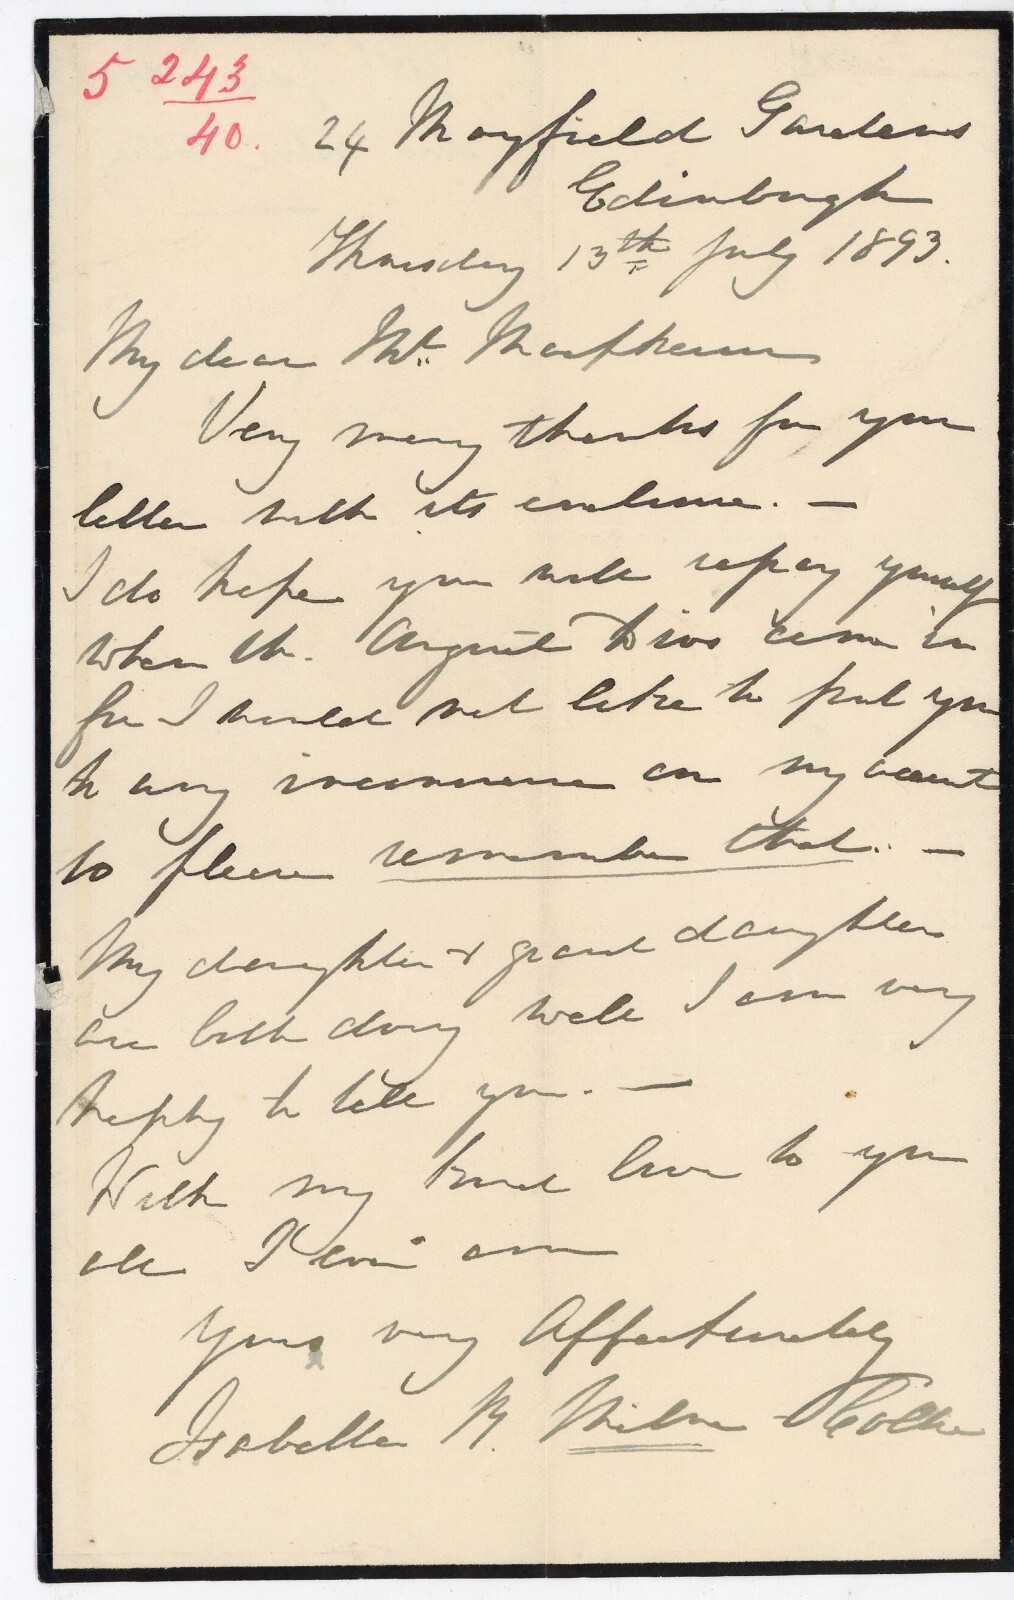 5 243
40.
24 Mayfield Gardens
Edinburgh
Thursday 13th July 1893.
My dear Mr.
Very many thanks for your
letter with its enclosure. —
I do hope you will repay yourself
when the August Divs come in
for I would not like to put you
to any inconvenience on my account
so please remember that. —
My daughter & grand daughter
are both doing well I am very
happy to tell you. —
With my kind love to you
all I ever am
Yours very Affectionately
Isabella M. Milne